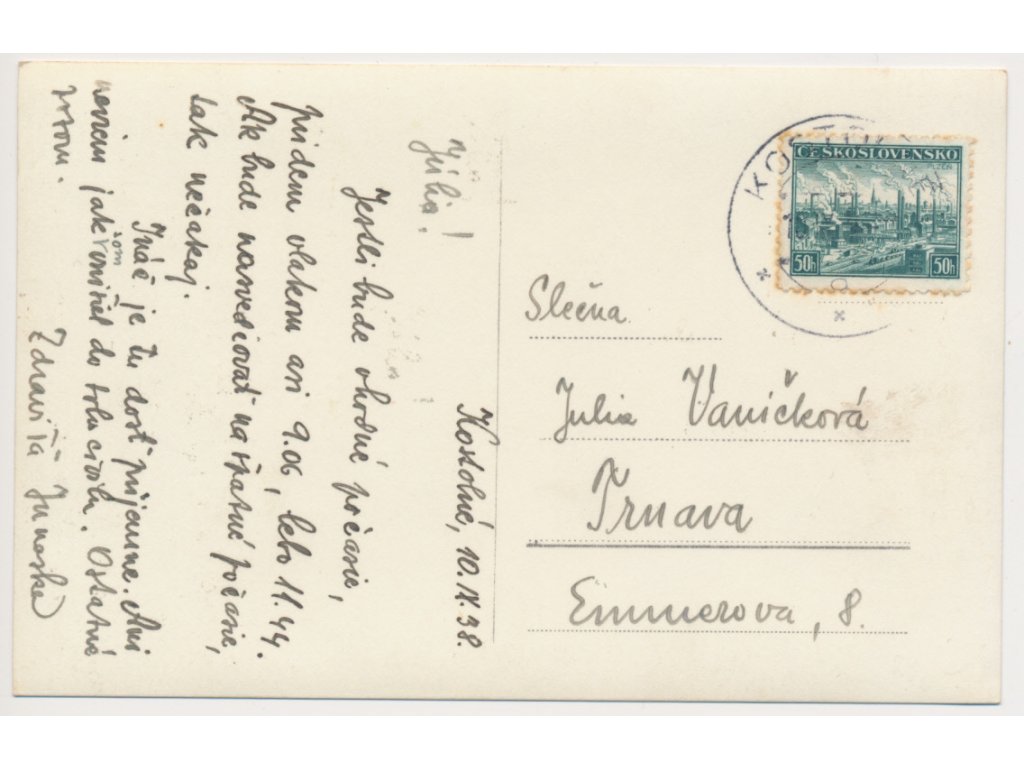 Kostolné, 10.IX.38.
Júlia!
Jestli bude vhodné počasie,
prídem vlakom asi 9.06, lebo 11.44.
Ak bude nasvedčovať na špatné počasie,
tak nečakaj.
Ináč je tu dosť príjemne. Ani
neviem jak
som
do toho civilu. Ostatné
potom.
Zdraví Ťa
ČESKOSLOVENSKO
PLZEŇ
50h 50h
Slečna
Julia Vaničková
Trnava
Emmerova, 8.